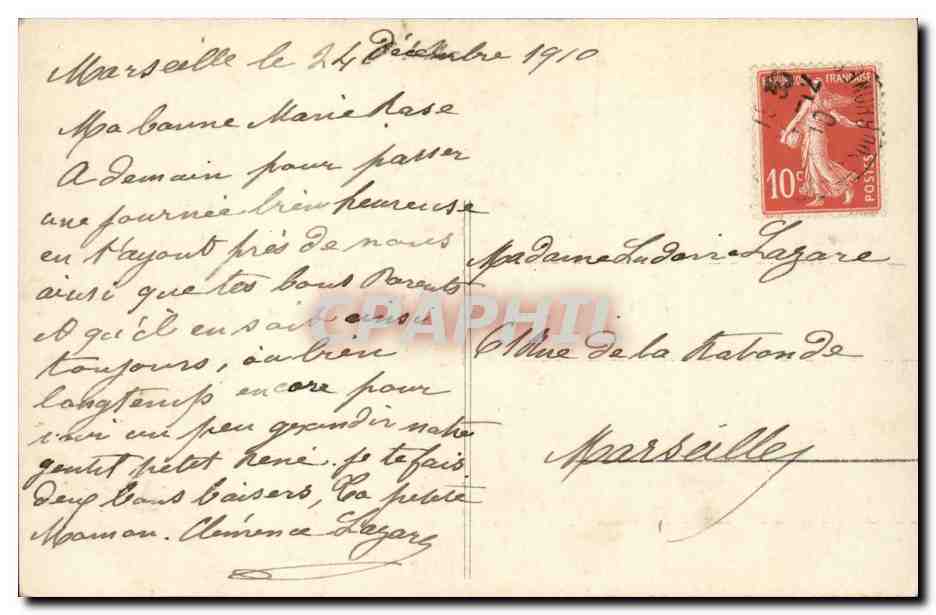 Marseille le 24 décembre 1910
Ma bonne Marie Rose
A demain pour passer
une journée bien heureuse
en t'ayant près de nous
ainsi que tes bons Parents
Et qu'il en soit ainsi
toujours, ou bien
longtemps encore pour
voir un peu grandir notre
gentil petit René. je te fais
deux bons baisers, Ta petite
Maman. Clémence Lazare
REPUBLIQUE FRANÇAISE
10c
POSTES
Madame Ludovic Lazare
Rue de la Rotonde
Marseille
CPAPHIL